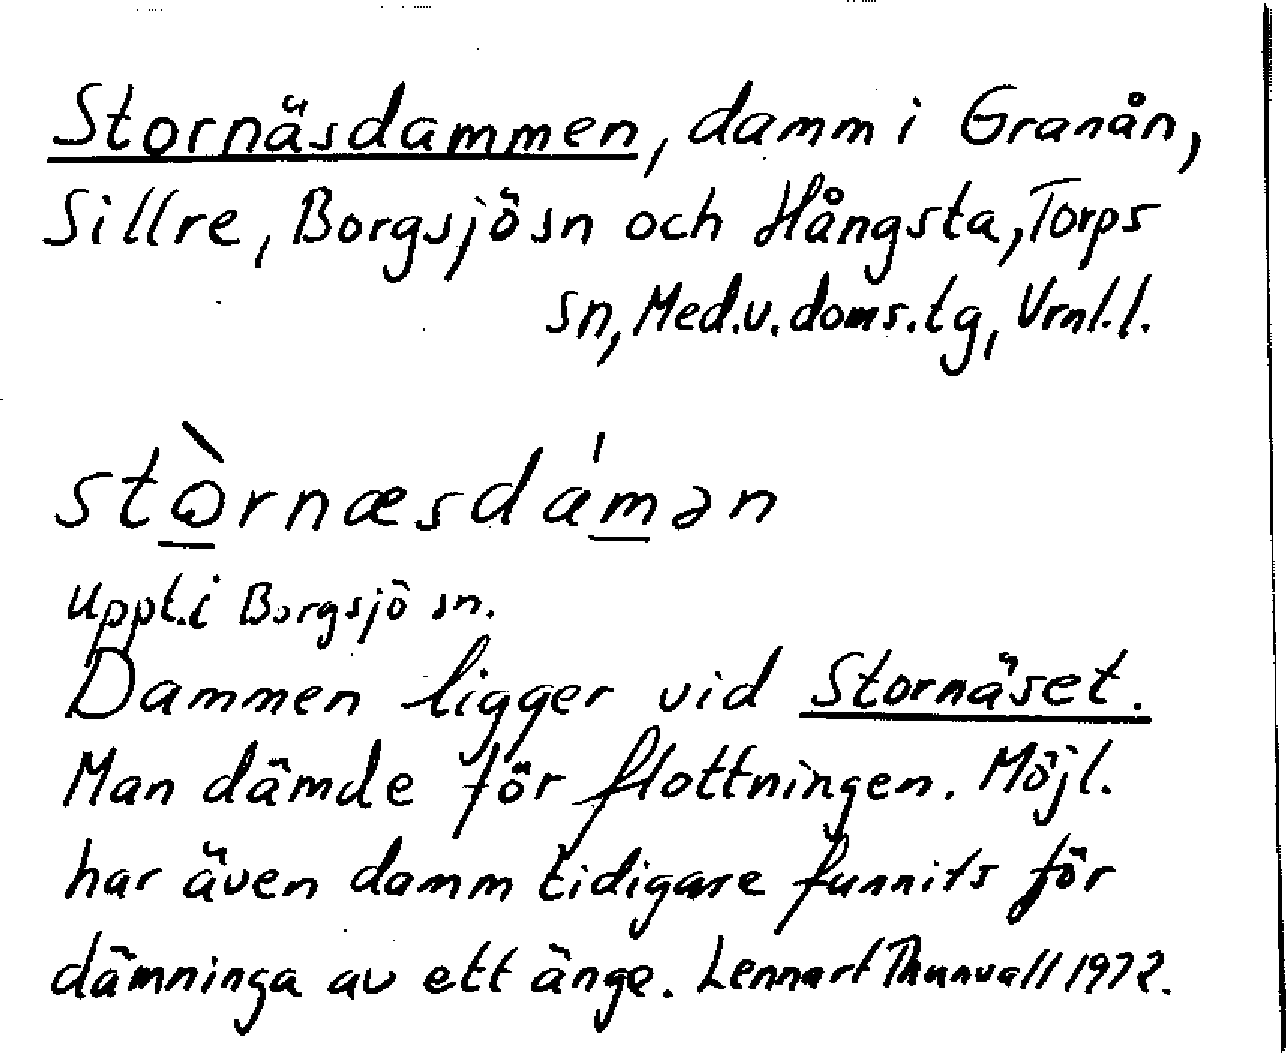 Stornäsdammen, damm i Granån,
Sillre, Borgsjö sn och Hångsta, Torps
sn, Med.v.doms.tg, Vrnl.l.
stòrnæsdámən
Uppt.i Borgsjö sn.
Dammen ligger vid Stornäset.
Man dämde för flottningen. Möjl.
har även damm tidigare funnits för
dämninga av ett änge. Lennart Thunvall 1972.